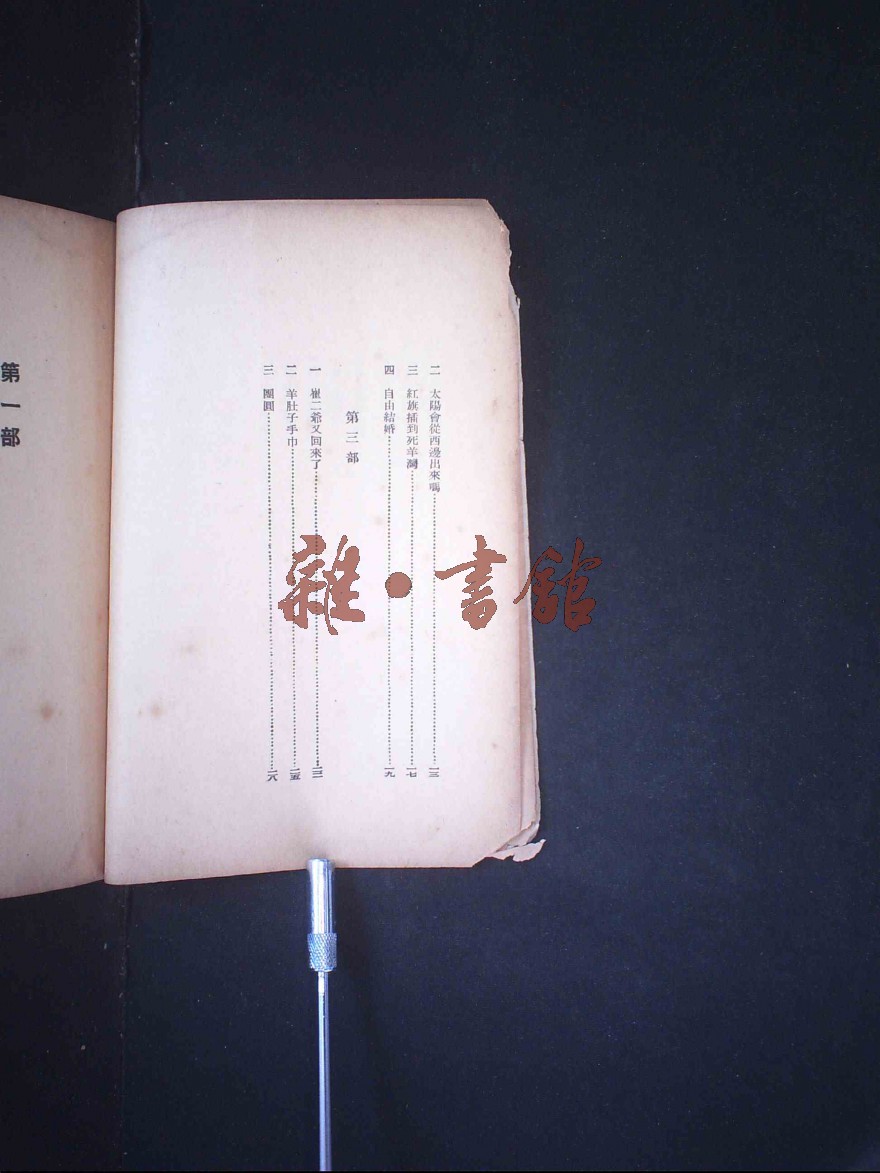 二 太陽會從西邊出來嗎……一三
三 紅旗插到死羊灣……一七
四 自由結婚……一九
第三部
一 崔二爺又回來了……
二 羊肚子手巾……二五
三 團圓……二八
第一部
雜•書館